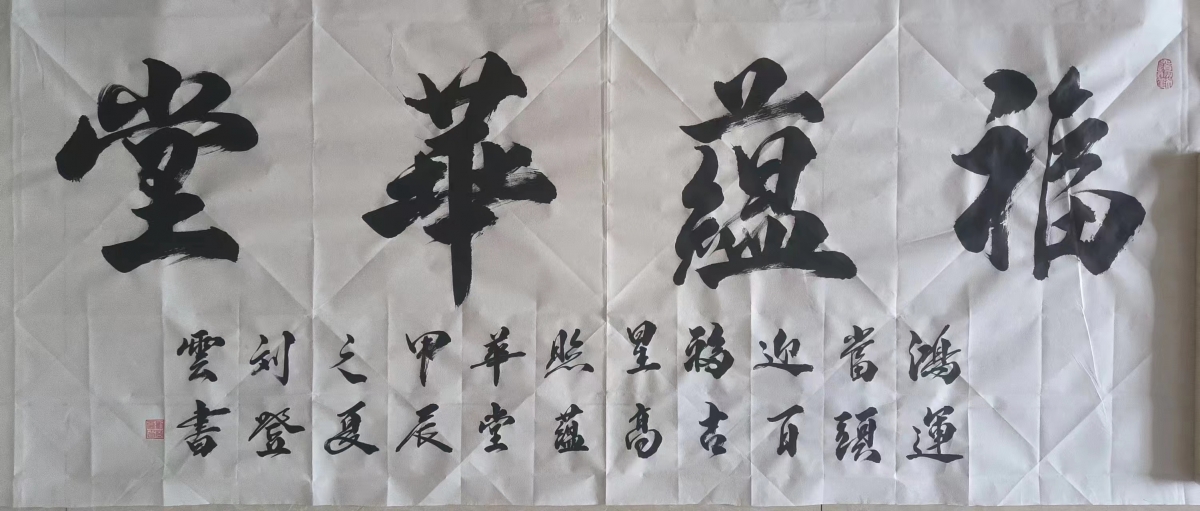 福蕴華堂
鴻運
當頭
迎百
福吉
星高
照蕴
華堂
甲辰
之夏
刘登
雲書